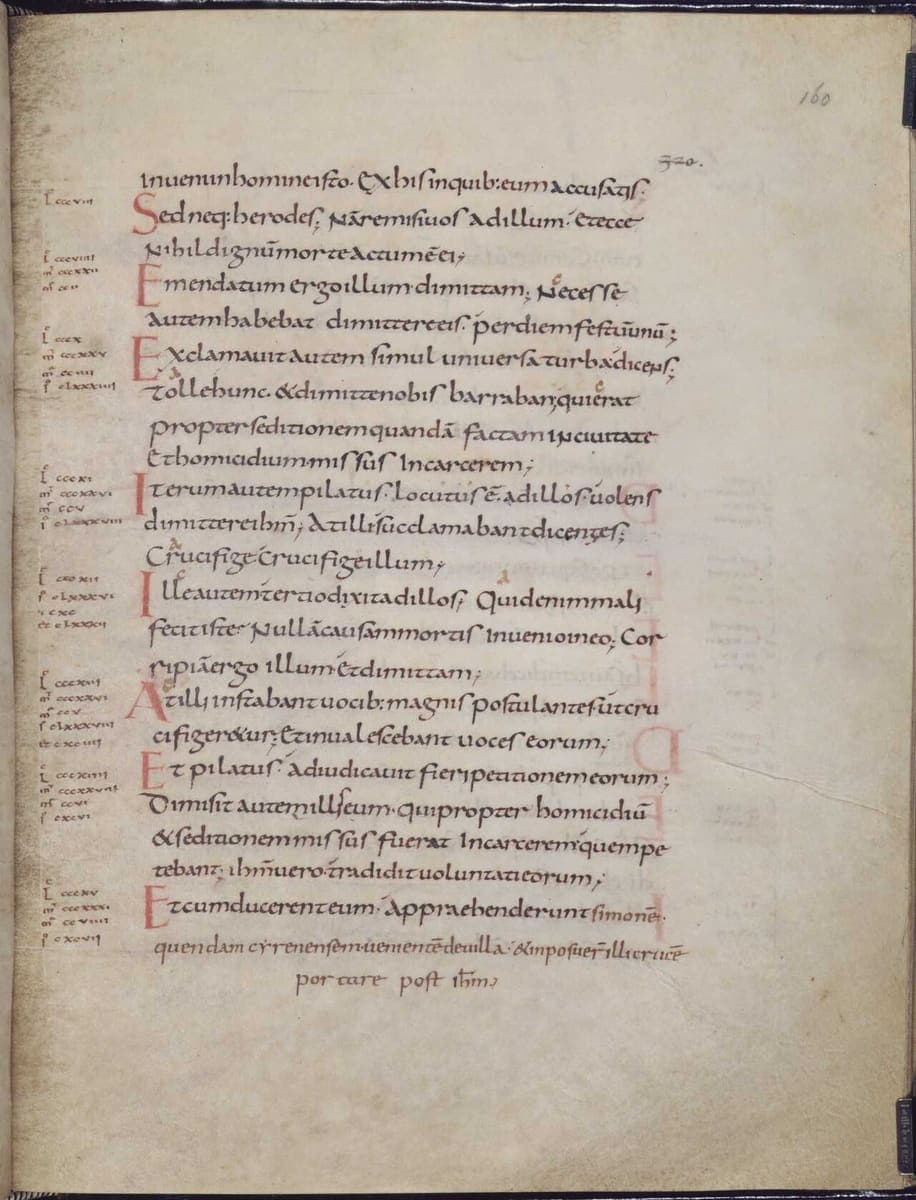 160
320.
invenio in homine isto. Ex his in quib: eum accusatis.
Sed neq: herodes; Nā remisi vos ad illum. Et ecce
Nihil dignū morte actum ē ei;
Emendatum ergo illum dimittam; Necesse
autem habebat dimittere eis. per diem festū unū;
Exclamavit autem simul universa turba dicens;
Tolle hunc. & dimitte nobis barraban, qui erat
propter seditionem quandā factam in civitate
Et homicidium missus In carcerem;
Iterum autem pilatus. locutus ē. ad illos. volens
dimittere ihm̄; At illi succlamabant dicentes;
Crucifige Crucifige illum;
Ille autem tertio dixit ad illos; Quid enim mali
fecit iste. Nullā causam mortis invenio in eo; Cor
ripiā ergo illum. Et dimittam;
At illi instabant vocib: magnis postulantes ut cru
cifiger&ur; Et invalescebant voces eorum;
Et pilatus. adiudicavit fieri petitionem eorum;
Dimisit autem illis eum. qui propter homicidiū
& seditionem missus fuerat In carcerem. quem pe
tebant; ihm̄ vero. tradidit voluntati eorum;
Et cum ducerent eum. Appraehenderunt simonē.
quendam cyrenensem. venientē de villa. & inposuer̄ illi crucē
portare post ihm̄;